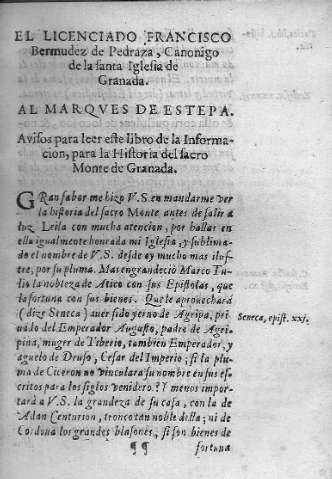 EL LICENCIADO FRANCISCO
Bermudez de Pedraza, Canonigo
de la santa Iglesia de
Granada.
AL MARQVES DE ESTEPA.
Auisos para leer este libro de la Informa-
cion, para la Historia del sacro
Monte de Granada.
GRan fabor me hizo V.S. en mandarme ver
la historia del sacro Monte antes de salir a
luz. Leila con mucha atencion, por hallar en
ella igualmente honrada mi Iglesia, y sublima-
do el nombre de V.S. desde oy mucho mas ilus-
tre, por su pluma. Mas engrandeciò Marco Tu-
lio la nobleza de Atico con sus Epistolas, que
la fortuna con sus bienes. Que le aprouechará
(dize Seneca) auer sido yerno de Agripa, pri
uado del Emperador Augusto, padre de Agri-
pina, muger de Tiberio, tambien Emperador, y
aguelo de Druso, Cesar del Imperio; si la plu-
ma de Ciceron no vinculara su nombre en sus es-
critos para los siglos venidero.? Y menos impor-
tarà a V.S. la grandeza de su casa, con la de
Adan Centurion, tronco tan noble della; ni de
Cordoua los grandes blasones, si son bienes de
fortuna
¶¶
Seneca, epist. xxj.